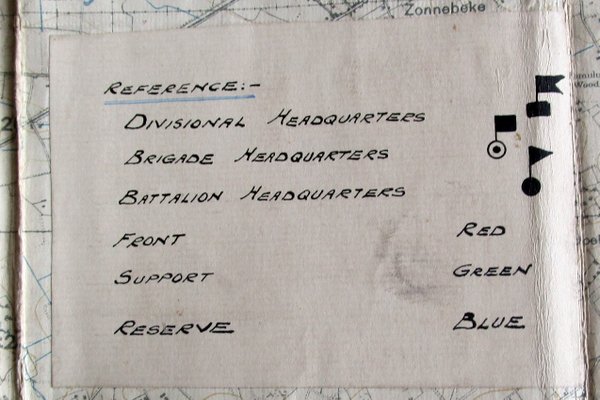 Zonnebeke
REFERENCE:-
DIVISIONAL HEADQUARTERS
BRIGADE HEADQUARTERS
BATTALION HEADQUARTERS
FRONT RED
SUPPORT GREEN
RESERVE BLUE